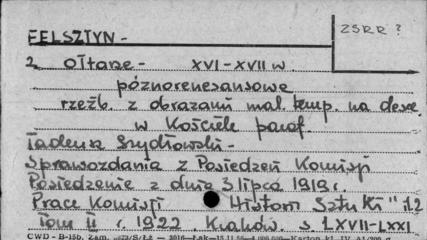 ZSRR ?
FELSZTYN -
2 ołtarze - XVI - XVII w
późnorenesansowe
rzeźb. z obrazami mal. temp. na desce
w Kościele paraf.
Tadeusz Szydłowski -
Sprawozdania z Posiedzeń Komisji
Posiedzenie z dnia 3 lipca 1919 r.
Prace Komisji Historii Sztuki"
Tom II r. 1922. Kraków. s LXVII-LXXI